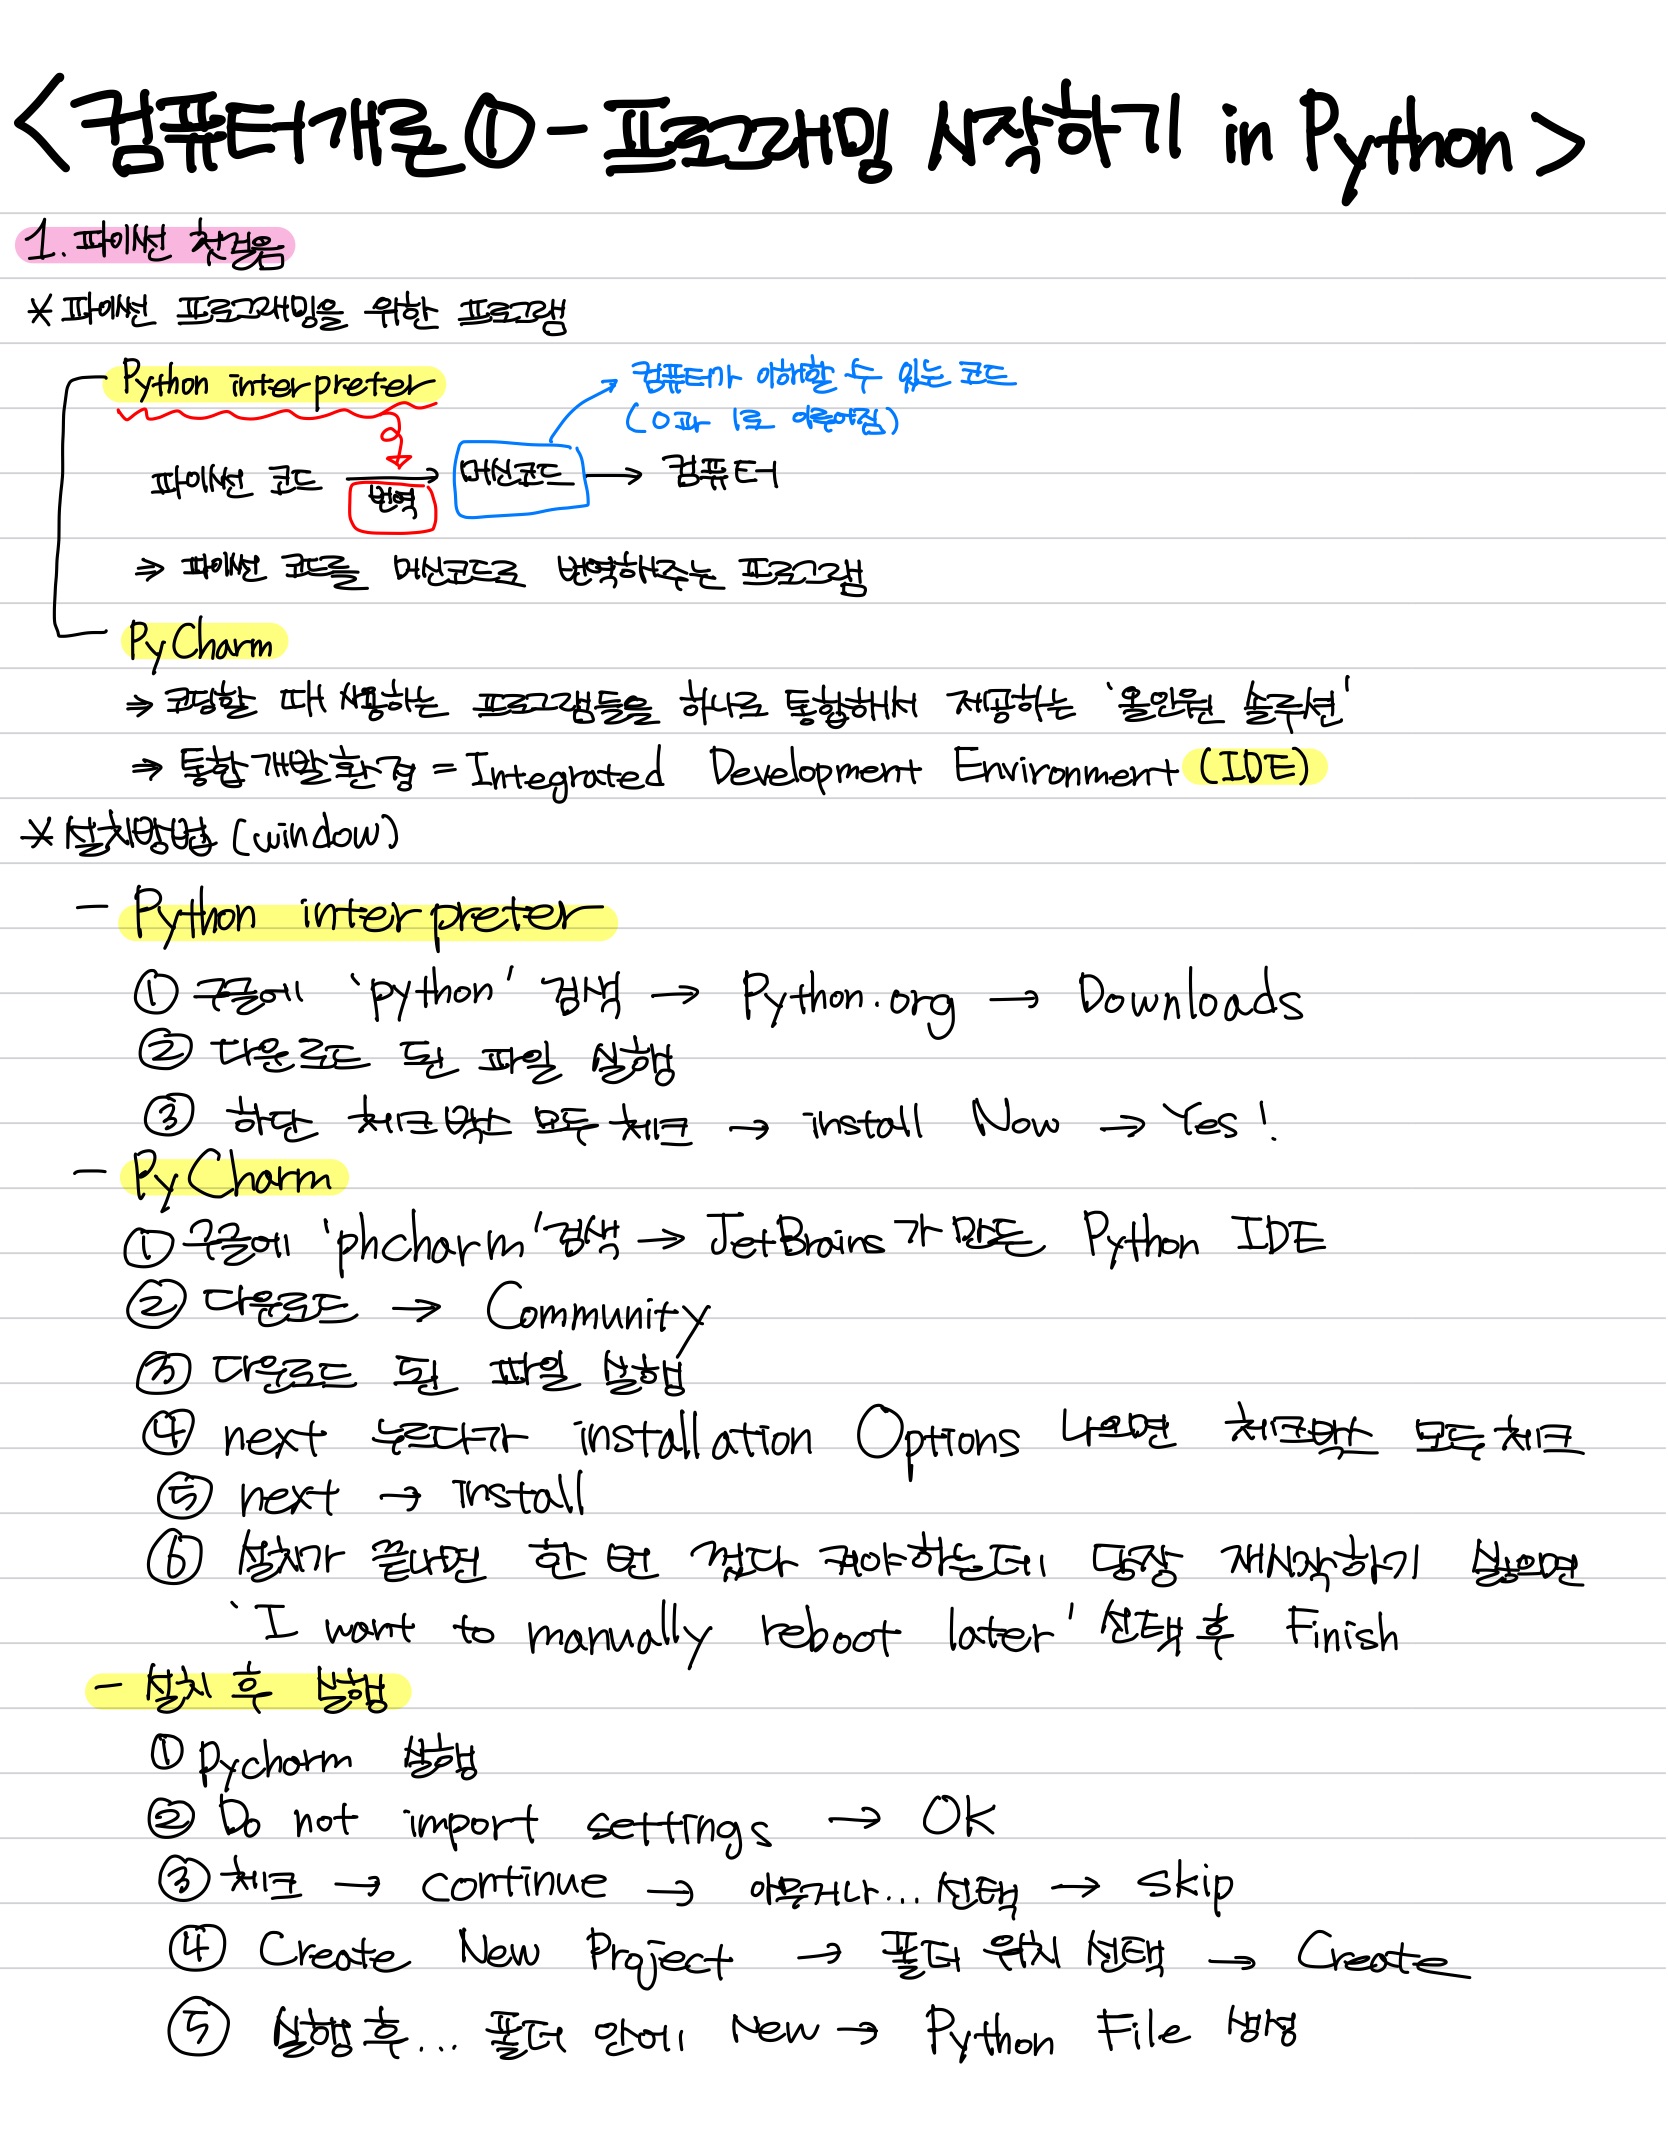 <컴퓨터개론① - 프로그래밍 시작하기 in Python>
1. 파이썬 첫걸음
* 파이썬 프로그래밍을 위한 프로그램
Python interpreter
컴퓨터가 이해할 수 있는 코드
(0과 1로 이루어짐)
파이썬 코드 → 머신코드 → 컴퓨터
번역
⇒ 파이썬 코드를 머신코드로 번역해주는 프로그램
PyCharm
⇒ 코딩할 때 사용하는 프로그램들을 하나로 통합해서 제공하는 '올인원 솔루션'
⇒ 통합개발환경 = Integrated Development Environment (IDE)
* 설치방법 (window)
- Python interpreter
① 구글에 'python' 검색 → Python.org → Downloads
② 다운로드 된 파일 실행
③ 하단 체크박스 모두 체크 → install Now → Yes!
- PyCharm
① 구글에 'phcharm' 검색 → JetBrains가 만든 Python IDE
② 다운로드 → Community
③ 다운로드 된 파일 실행
④ next 누르다가 installation Options 나오면 체크박스 모두 체크
⑤ next → install
⑥ 설치가 끝나면 한 번 껐다 켜야하는데 당장 재시작하기 싫으면
'I want to manually reboot later' 선택 후 Finish
- 설치 후 실행
① Pycharm 실행
② Do not import settings → OK
③ 체크 → continue → 아무거나... 선택 → skip
④ Create New Project → 폴더 위치 선택 → Create
⑤ 실행 후... 폴더 안에 New → Python File 생성